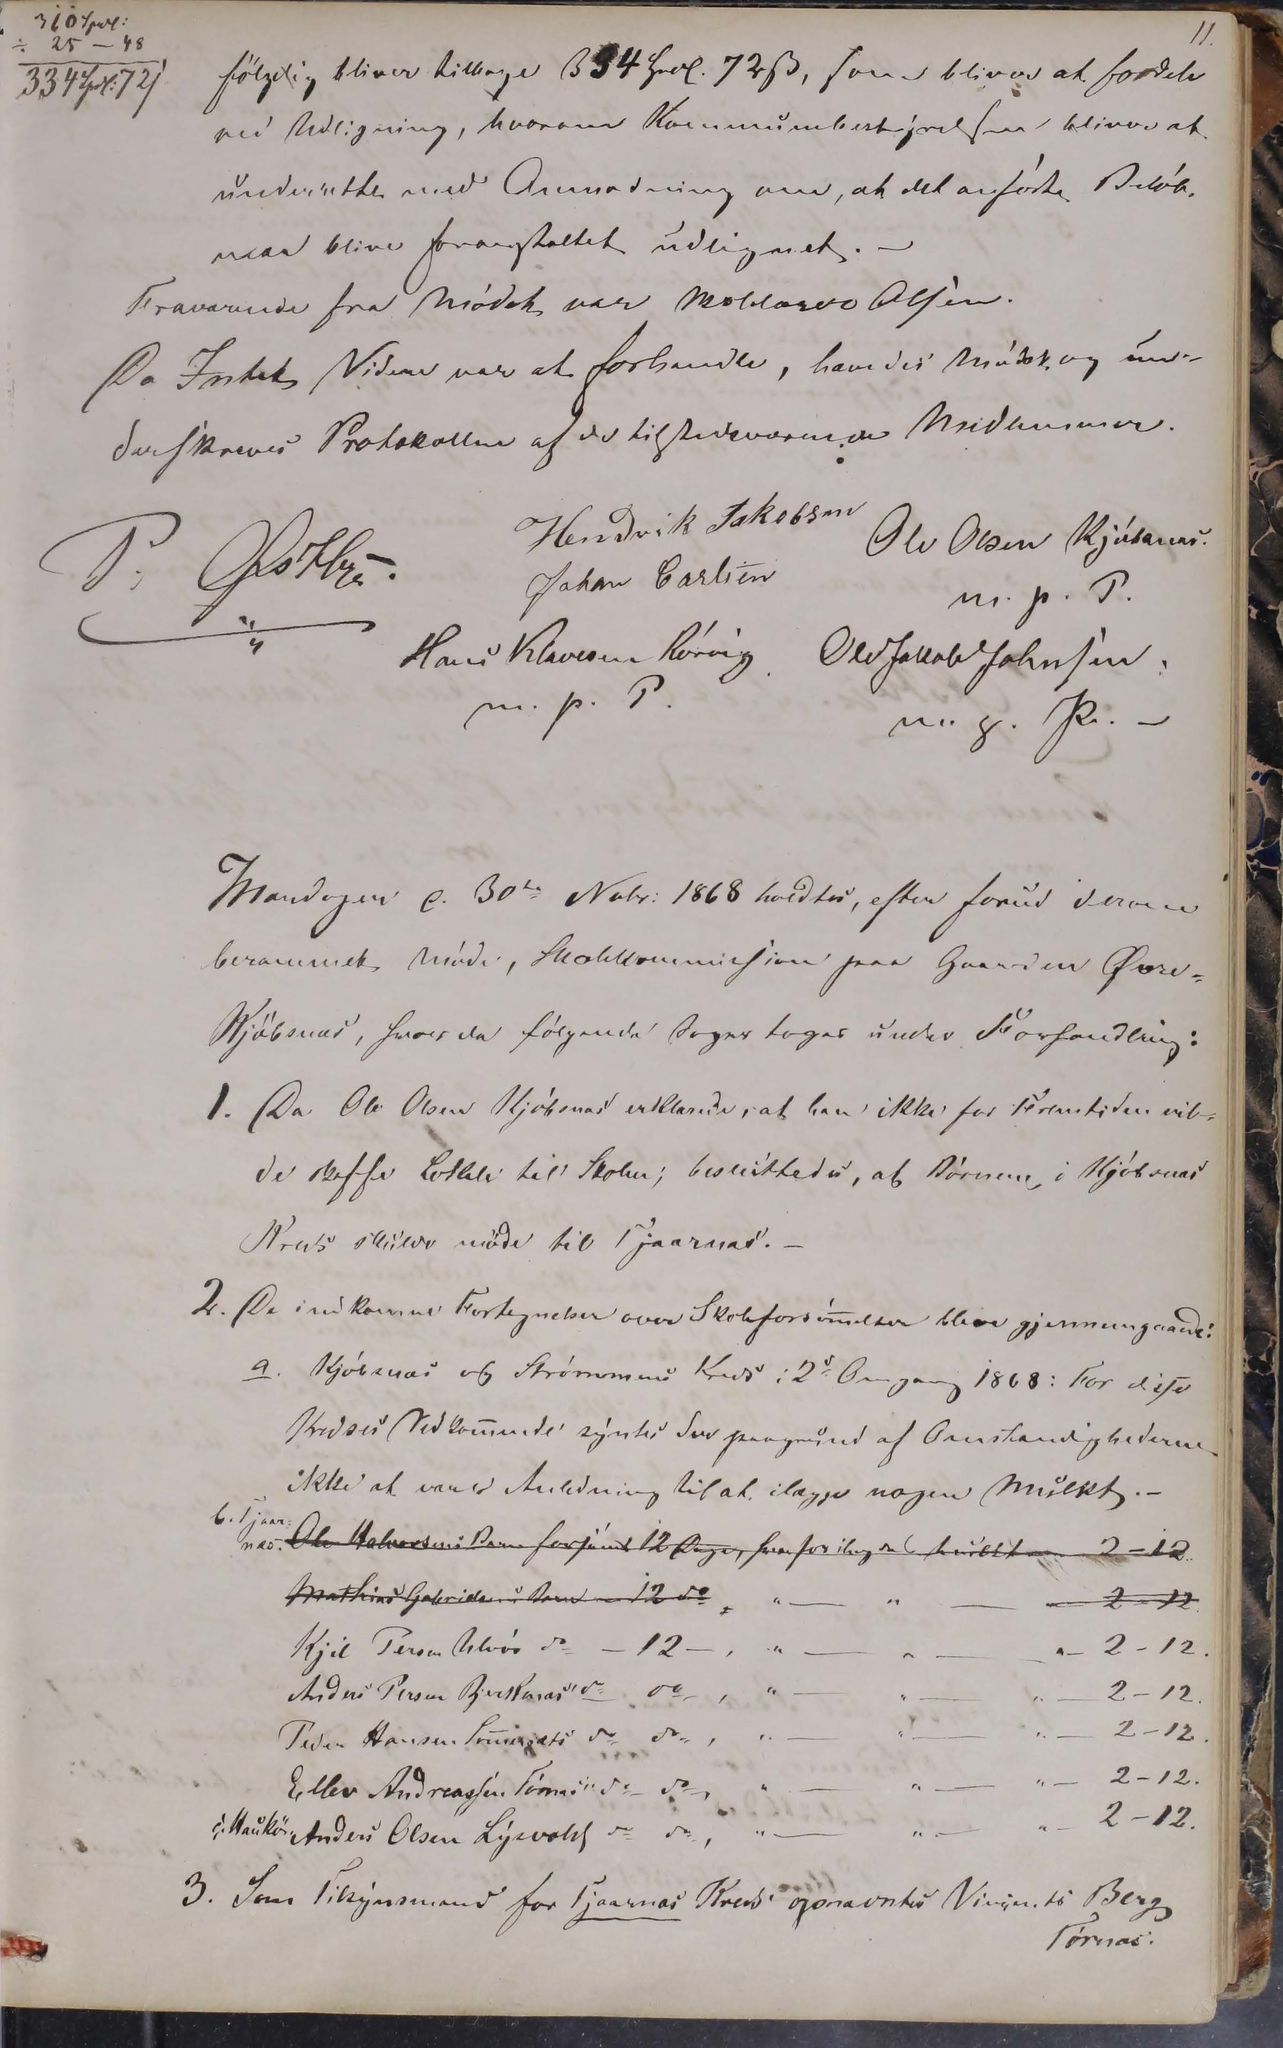 11.
310 Spd:
÷ 25 – 48
334 Spd: 72ß
følgelig bliver tilbage 334 Spd. 72ß, som bliver at fordele
ved Udligning, hvorom Kommunebestyrelsen bliver at
underrette med Anmodning om, at det anførte Beløb
maa blive foranstaltet udlignet. –
Fraværende fra Mødet var Meldorvo Olsen.
Da Intet Videre var at forhandle, hævedes Mødet og un-
derskreves Protokollen af de tilstedeværende Medlemmer.
P.
Hendrik Jakobsen
Ole Olsen Kjóbsnæs.
Johan Carlsen
m. p. P.
Hans Klavesen Rórvig
Ole Jakob Johnsen.
m. p. P.
m. p. P. –
Mandagen d. 30te Novbr: 1868 holdtes, efter forud derom
berammet Møde, Skolekommission paa Gaarden Øvre-
Kjóbsnæs, hvor da følgende Sager toges under Forhandling:
1. Da Ole Olsen Kjóbsnæs erklærede, at han ikke for Fremtiden vil-
de skaffe Lokale til Skolen; besluttedes, at Børnene i Kjóbsnæs
Kreds skulde møde til Tjaarnæs. –
2. De indkomne Fortegnelser over Skoleforsømmelser bleve gjennemgaaede:
a. Kjóbsnæs og Strømmens Kreds i 2d Omgang 1868: For disse
Kredses Vedkommende syntes der paagrund af Omstændighederne
ikke at være Anledning til at ilægge nogen Mulkt. –
b. Tjaar-
næs. Ole Halvorsens Barn forsømt 12 Dage, hvorfor ilagdes Mulkt 2 – 12.
Mathias Gabrielsens Barn – 12 do „ „ — „ — „ 2 – 12.
Kjel Person Ulvós do – 12 –, „ — „ — „ – 2 – 12.
Anders Person Bjerknæs do do, „ — „ — „ – 2 – 12.
Peder Hansen Sommersæts do do, „ — „ — „ – 2 – 12.
Ellev Andreassen Tórnæs do do, „ — „ — „ – 2 – 12.
c. Haukós. Anders Olsen Lysvold do do, „ — „ — „ – 2 – 12.
3. Som Tilsynsmand for Tjaarnæs Kreds opnævntes Vinsents Berg
Tórnæs.